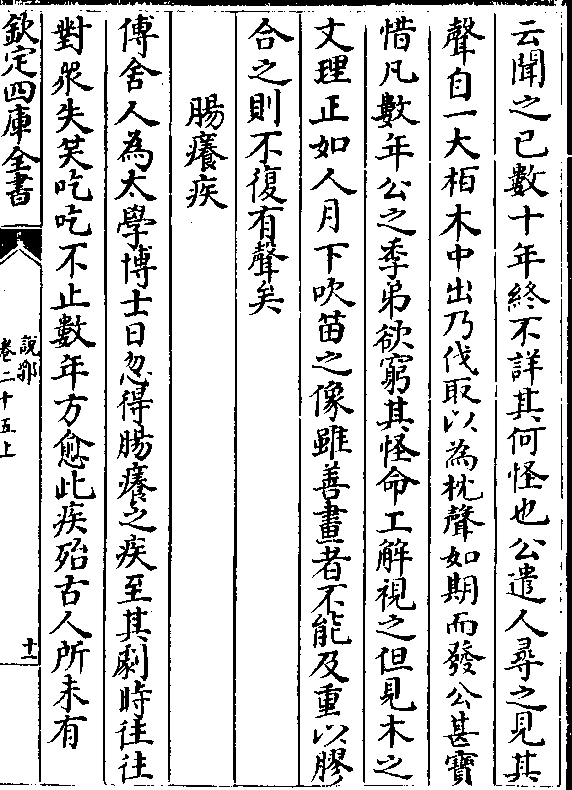 云聞之已數十年終不詳其何怪也公遣人尋之見其
聲自一大栢木中出乃伐取以為枕聲如期而發公甚寶
惜凡數年公之季弟欲窮其怪命工解視之但見木之
文理正如人月下吹笛之像雖善畫者不能及重以膠
合之則不復有聲矣
腸癢疾
傅舍人為太學博士日忽得腸癢之疾至其劇時往往
對衆失笑吃吃不止數年方愈此疾殆古人所未有
欽定四庫全書
說郛
卷二十五上
十一